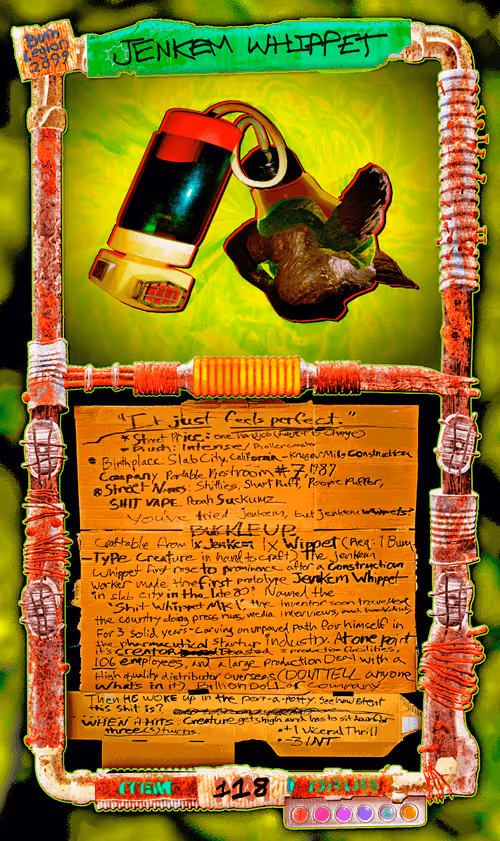 Bum
2099
JENKEM WHIPPET
"It just feels perfect."
* Street Price: one handjob (subject to change)
* Rush: Intense / Rollercoaster
* Birthplace Slab City, California - Kruger Mills Construction
Company Portable Restroom #7, 1987
* Street Names: Shitties, Shart Puff, Poope Puffer,
SHIT VAPE, Pocah Suckumz
You've tried Jenkem, but jenkem whippets?
BUCKLE UP
Craftable from 1x Jenkem 1x Wippet (Req: 1 Bum
-Type Creature in hand to craft) The jenkem
Whippet first rose to prominence after a construction
worker made the first prototype Jenkem Whippet
in slab city in the late 80's. Named the
"Shit Whippet MK1," the inventor soon traveled
the country doing press runs, media interviews, and
For 3 solid years - Carving an unpaved path for himself in
the pharmaceutical startup industry. At one point
his creation boasted 3 production facilities,
106 employees, and a large production Dept with a
High quality distributor overseas (DON'T TELL anyone
what's in it) Billion Dollar Company
Then HE WOKE up in the port-a-potty. See how potent
this shit is?
WHEN IT HITS: Creature gets high and has to sit down for
three(3) turns.
• +1 Visceral Thrill
• -3 INT
ITEM
118
DRUG